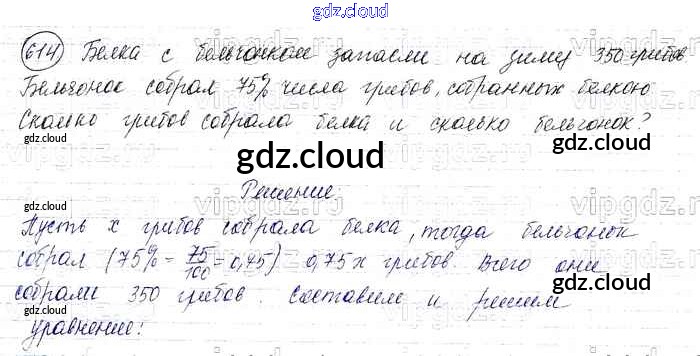 gdz.cloud
614 Белка с бельчонком запасли на зиму 350 грибов
Бельчонок собрал 75% числа грибов, собранных белкою
Сколько грибов собрала белка и сколько бельчонок?
gdz.cloud
gdz.cloud
gdz.cloud
Решение:
gdz.cloud
Пусть x грибов собрала белка, тогда бельчонок
собрал (75% = 75/100 = 0,75) 0,75x грибов. Всего они
собрали 350 грибов. Составим и решим
уравнение:
gdz.cloud
gdz.cloud
gdz.cloud